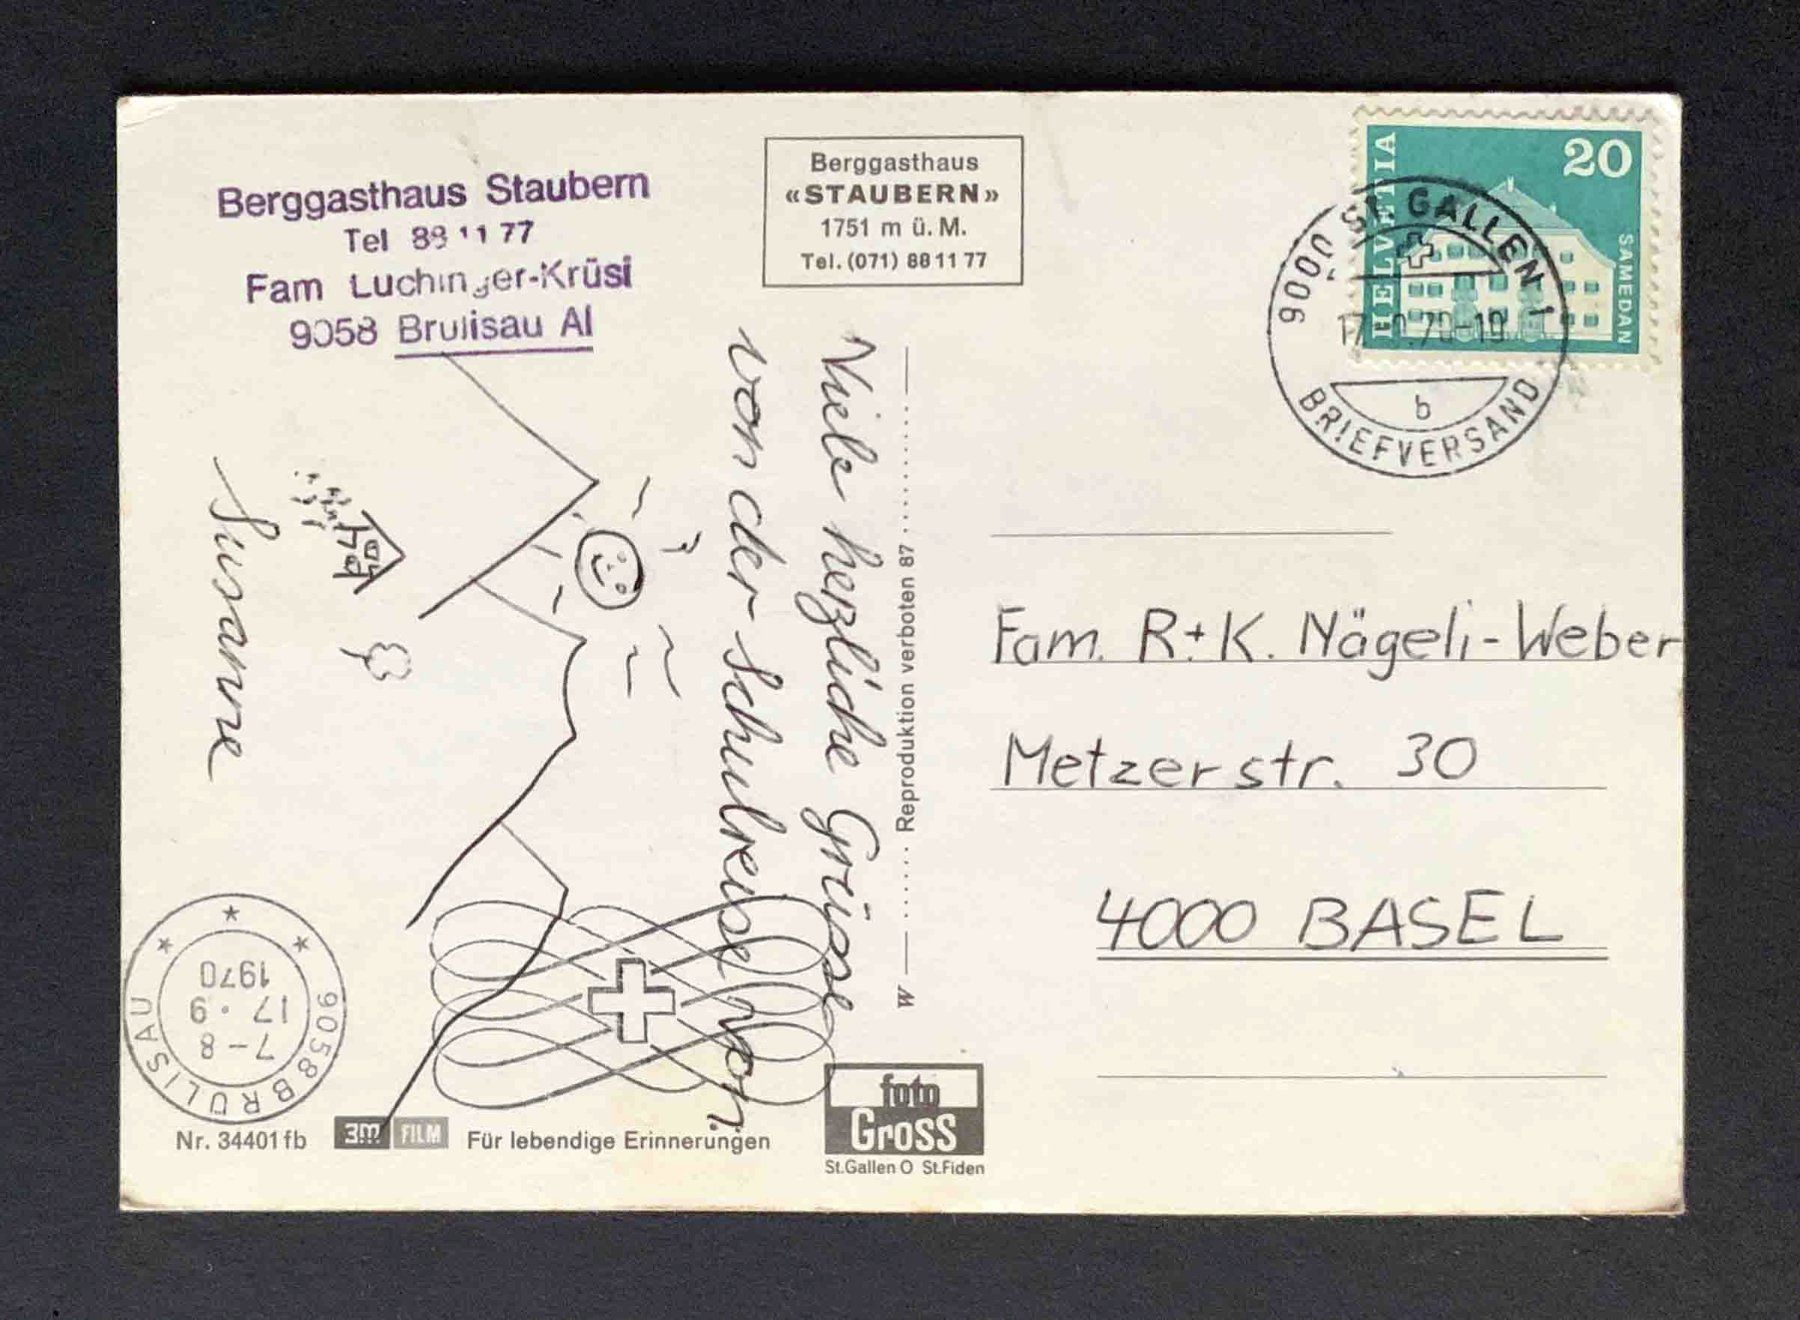 Berggasthaus Staubern
Tel 88 11 77
Fam Luchinger-Krüsi
9058 Brulisau AI
Berggasthaus
«STAUBERN»
1751 m ü. M.
Tel. (071) 88 11 77
HELVETIA
20
SAMEDAN
9000 ST. GALLEN 1
70-19
b
BRIEFVERSAND
Viele herzliche Grüsse
von der Schulreise
Susanne
W Reproduktion verboten 87
Fam. R+K. Nägeli-Weber
Metzerstr. 30
4000 BASEL
9058 BRÜLISAU
7-8
17.9
1970
Nr. 34401fb
3M FILM
Für lebendige Erinnerungen
foto
Gross
St.Gallen O St.Fiden